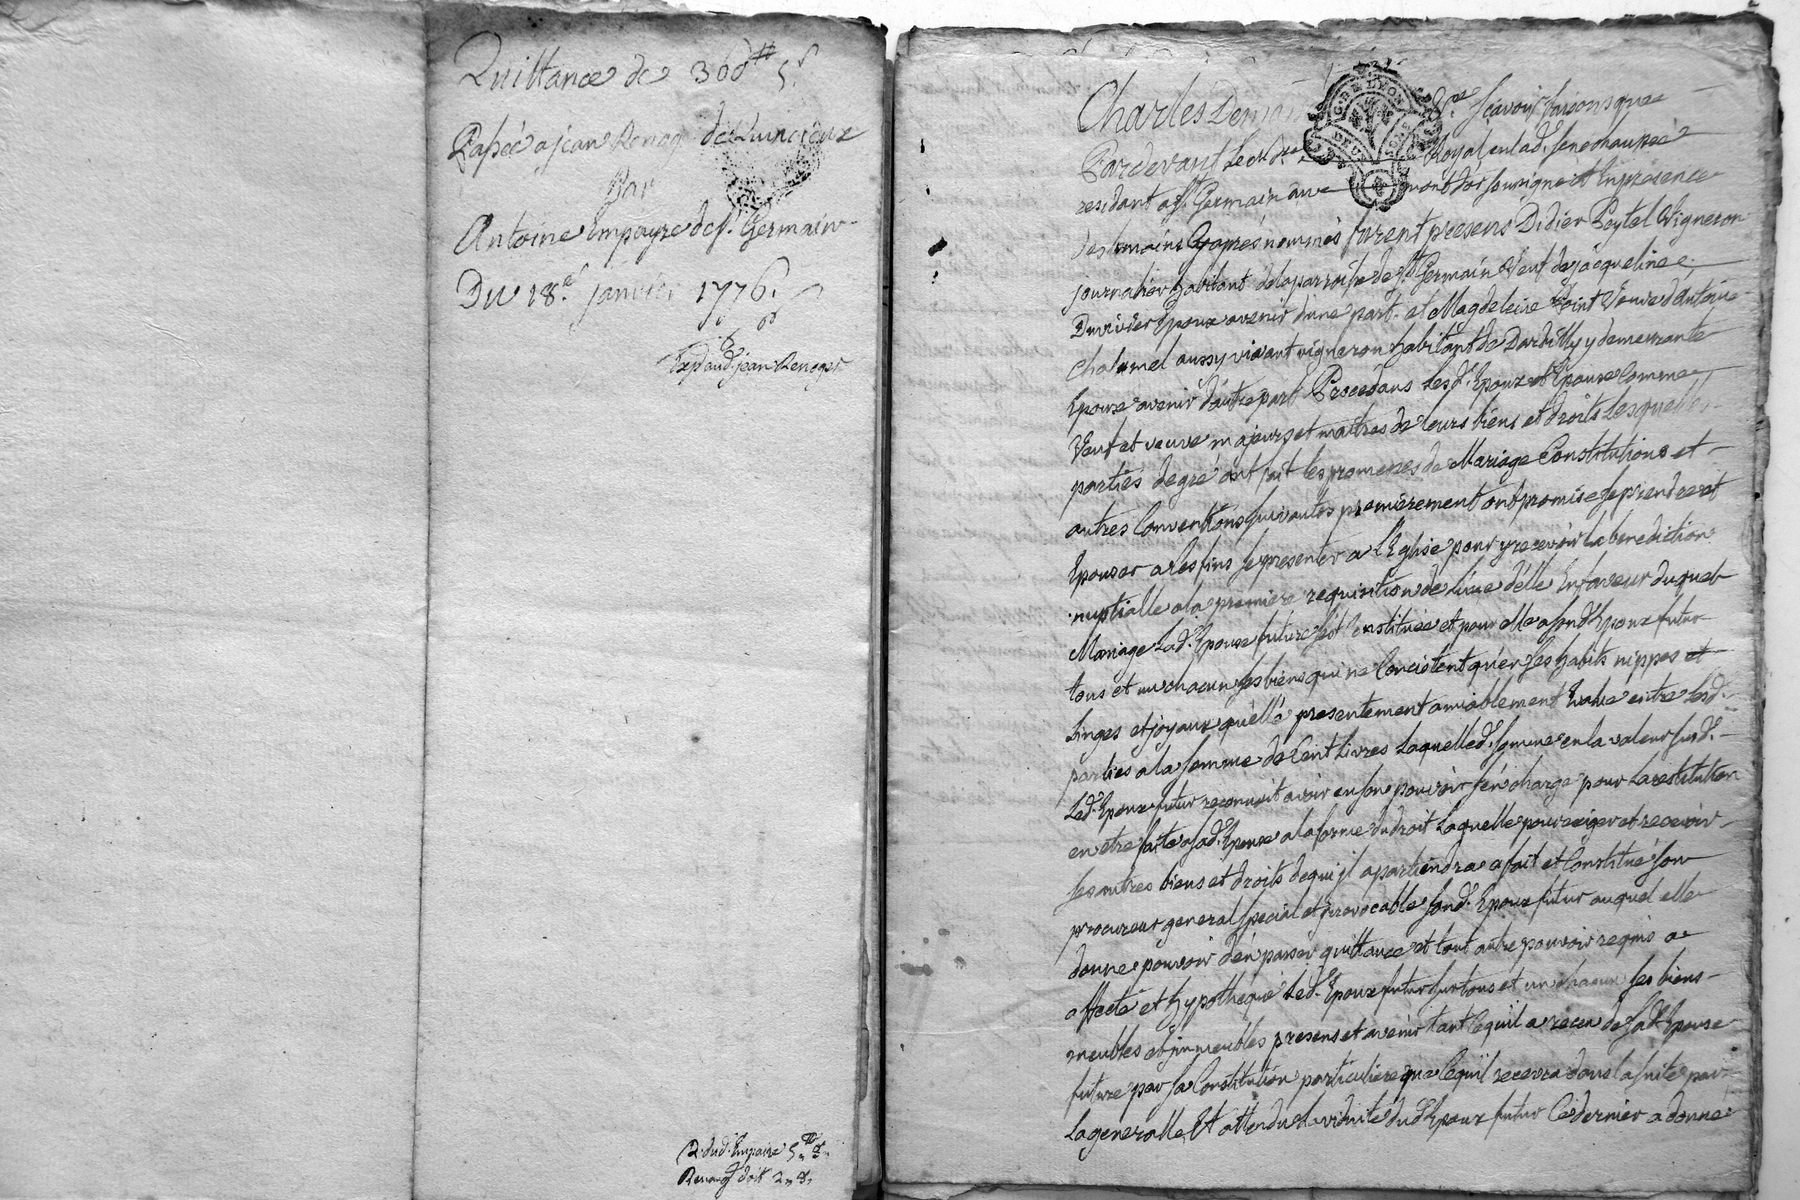 Quittance de 360# 5s
Passée a jean Renoge de Quincieux
Par
Antoine Empayre de St. Germain
Du 18e janvier 1776.
Exp aud. jean Renoger
R. dud. Empaire 5#
doit 2
Charles Demon &c. scavoir faisons que
G. DE LYON
DEUX SOLS
Pardevant Le Royal en lad. senechaussée
residant a St Germain au mont dor soussigné et En presence
des temoins Cy apres nommés furent presens Didier Peytel Vigneron
journalier habitant de la parroisse de St Germain Veuf de jacqueline
Duvivier Epoux avenir dune part. et Magdeleine Point Veuve d'Antoine
Chalamel aussy vivant vigneron habitant de Dardilly y demeurante
Epouse avenir d'autre part Procedans Lesd. Epoux et Epouse Comme
Veuf et veuve majeurs et maitres de leurs biens et droits Lesquelles
parties de gré ont fait les promesses de Mariage Constitutions et
autres Conventions suivantes premierement ont promis se prendre et
Epouser a ces fins se presenter a L'Eglise pour y recevoir la benediction
nuptialle a la premiere requisition de L'une d'elle En faveur duquel
Mariage Lad. Epouse future sest Constituée et pour elle a sond. Epoux futur
tous et un chacun ses biens qui ne Concistent qu'en ses habits nippes et
Linges et joyaux qu'elle presentement amiablement Evalue entre lesd.
parties a la somme de Cent Livres Laquelle d. somme en la valeur susd.
Led. Epoux futur reconnoit avoir en son pouvoir sen charge pour La restitution
en etre faite a sad. Epouse a la forme du droit Laquelle pour exiger et recevoir
ses autres biens et droits de qui jl apartiendra a fait et Constitué son
procureur general special et jrrevocable sond. Epoux futur auquel elle
donne pouvoir d'en passer quittance et tout autre pouvoir requis a
affecté et hypothequé Led. Epoux futur sur tous et un chacun ses biens
meubles et jmmeubles presens et avenir tant ce quil a recu de sad. Epouse
future par sa Constitution particuliere que Ce quil recevra dans la suite par
La generalle, Et attendu La viduité dud. Epoux futur Ce dernier a donné